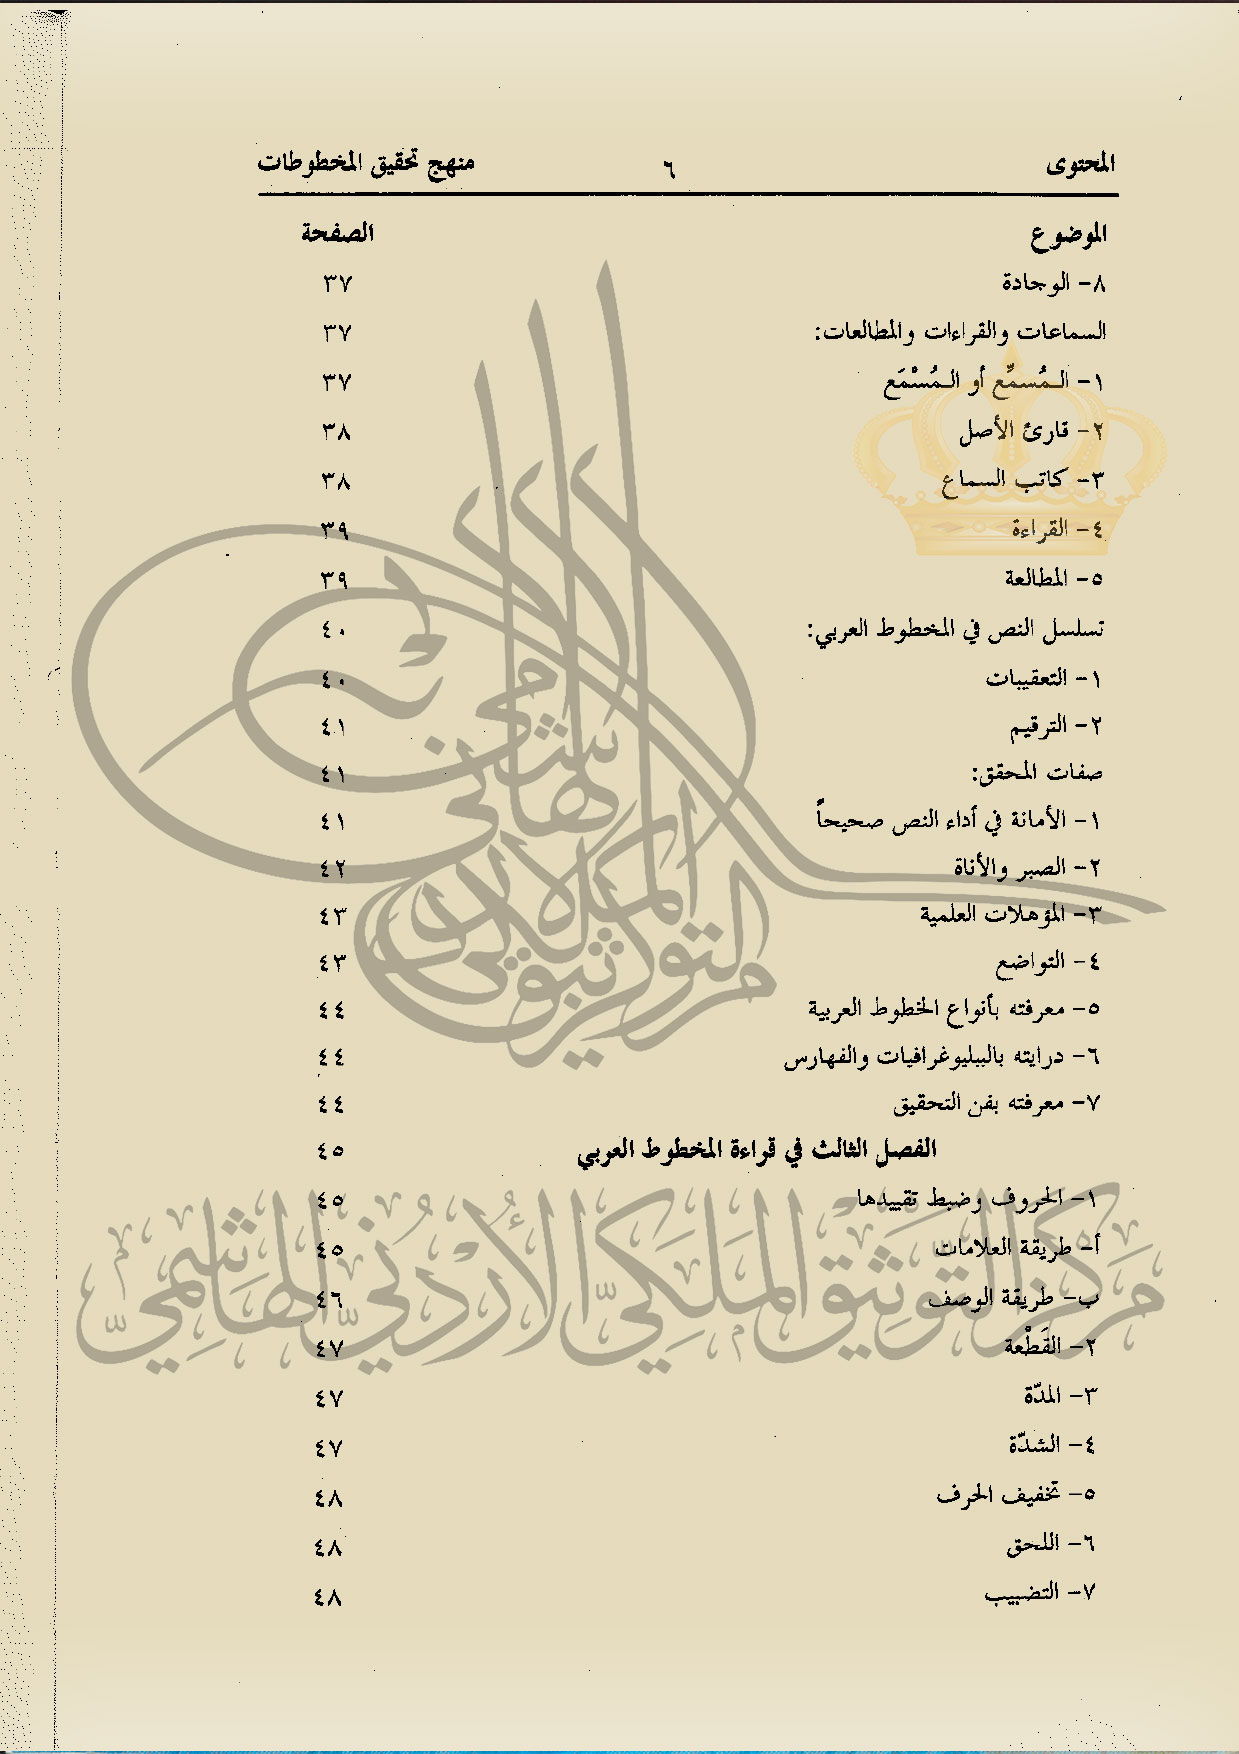 المحتوى ٦ منهج تحقيق المخطوطات
الموضوع الصفحة
٨- الوجادة ٣٧
السماعات والقراءات والمطالعات: ٣٧
١- الـمُسمِّع أو الـمُسْمَع ٣٧
٢- قارئ الأصل ٣٨
٣- كاتب السماع ٣٨
٤- القراءة ٣٩
٥- المطالعة ٣٩
تسلسل النص في المخطوط العربي: ٤٠
١- التعقيبات ٤٠
٢- الترقيم ٤١
صفات المحقق: ٤١
١- الأمانة في أداء النص صحيحاً ٤١
٢- الصبر والأناة ٤٢
٣- المؤهلات العلمية ٤٣
٤- التواضع ٤٣
٥- معرفته بأنواع الخطوط العربية ٤٤
٦- درايته بالببليوغرافيات والفهارس ٤٤
٧- معرفته بفن التحقيق ٤٤
الفصل الثالث في قراءة المخطوط العربي ٤٥
١- الحروف وضبط تقييدها ٤٥
أ- طريقة العلامات ٤٥
ب- طريقة الوصف ٤٦
٢- القَطْعة ٤٧
٣- المدّة ٤٧
٤- الشدّة ٤٧
٥- تخفيف الحرف ٤٨
٦- اللحق ٤٨
٧- التضبيب ٤٨
مركز التوثيق الملكي الأردني الهاشمي